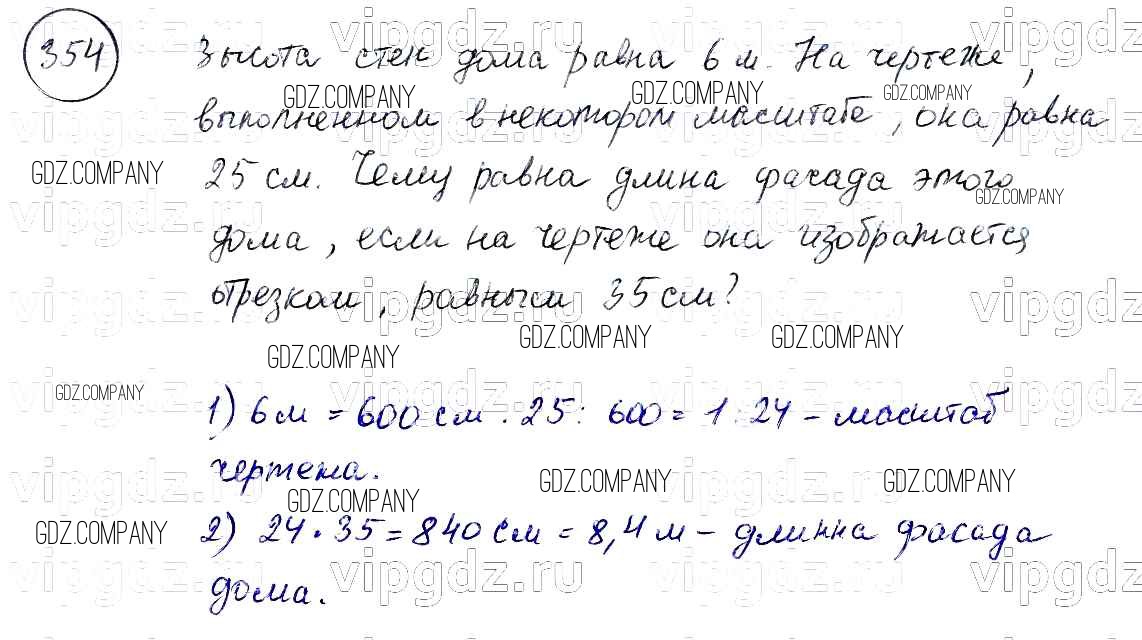 354
Высота стен дома равна 6 м. На чертеже,
выполненном в некотором масштабе, она равна
25 см. Чему равна длина фасада этого
дома, если на чертеже она изображается
отрезком, равным 35 см?
1) 6 м = 600 см. 25 : 600 = 1 : 24 – масштаб
чертежа.
2) 24 · 35 = 840 см = 8,4 м – длинна фасада
дома.
GDZ.COMPANY
vipgdz.ru